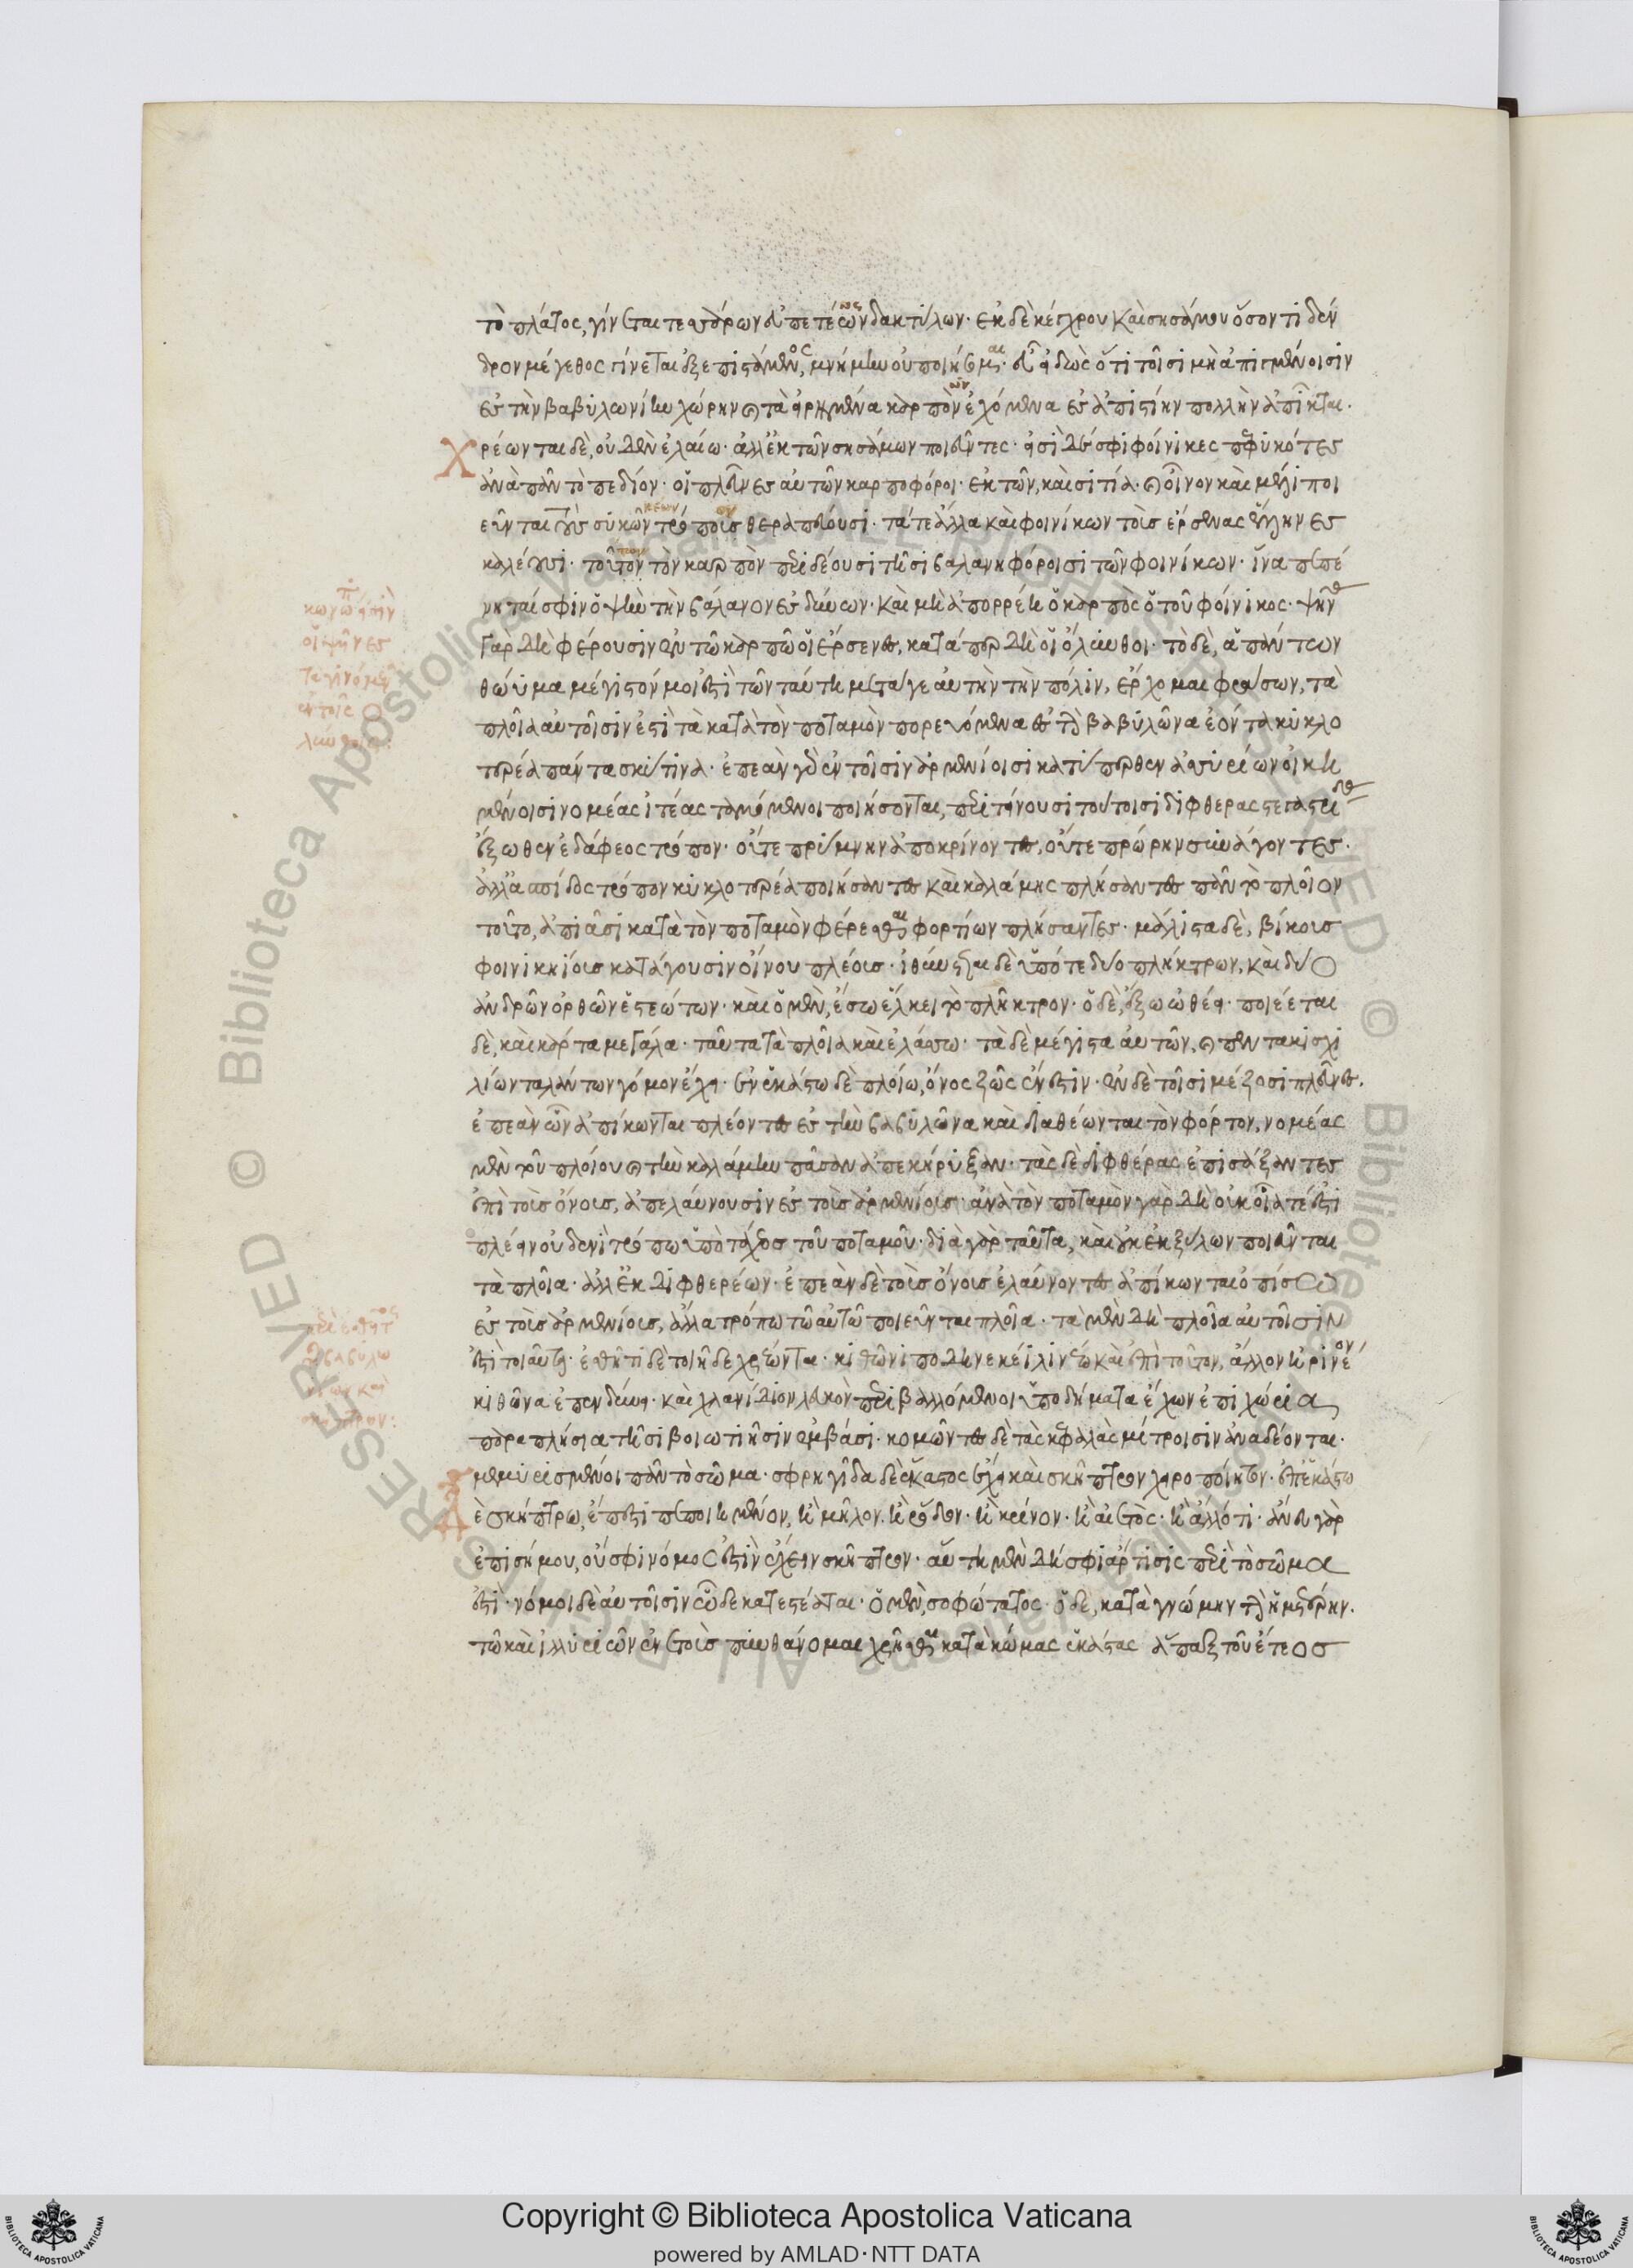 τὸ πλάτος, γίνεται τεσσέρων εὐπετέως δακτύλων· ἐκ δὲ κέγχρου καὶ σησάμου ὅσον τι δέν
δρον μέγεθος γίνεται ἐξεπιστάμενος, μνήμην οὐ ποιήσομαι· εὖ εἰδὼς ὅτι τοῖσι μὴ ἀπιγμένοισιν
ἐς τὴν βαβυλωνίην χώρην καὶ τὰ εἰρημένα καρπῶν ἐχόμενα ἐς ἀπιστίην πολλὴν ἀπῖκται.
Χρέωνται δὲ, οὐδὲν ἐλαίω· ἀλλ' ἐκ τῶν σησάμων ποιεῦντες· εἰσὶ δέ σφι φοίνικες πεφυκότες
ἀνὰ πᾶν τὸ πεδίον· οἱ πλεῦνες αὐτῶν καρποφόροι· ἐκ τῶν, καὶ σιτία· καὶ οἶνον καὶ μέλι ποι
εῦνται τοὺς συκέων τρόπον θεραπεύουσι· τά τε ἄλλα καὶ φοινίκων τοὺς ἔρσενας ἕλληνες
καλέουσι· τούτων τὸν καρπὸν περιδέουσι τῆσι βαλανηφόροισι τῶν φοινίκων· ἵνα πεπέ
νηταί σφιν ὁ ψὴν τὴν βάλανον ἐσδύνων· καὶ μὴ ἀπορρέη ὁ καρπὸς ὁ τοῦ φοίνικος· ψῆνας
γὰρ δὴ φέρουσιν ἐν τῶ καρπῶ οἱ ἔρσενες, κατά περ δὴ οἱ ὄλυνθοι· τὸ δὲ, ἁπάντων
θώυμα μέγιστόν μοι ἐστὶ τῶν ταύτη μετά γε αὐτὴν τὴν πόλιν, ἔρχομαι φράσων, τὰ
πλοῖα αὐτοῖσιν ἐστὶ τὰ κατὰ τὸν ποταμὸν πορευόμενα ἐς τὴν βαβυλῶνα ἐόντα κυκλο
τερέα πάντα σκύτινα· ἐπεὰν γὰρ ἐν τοῖσιν ἀρμενίοισι κατύπερθεν ἀσσυρίων οἰκη
μένοισι νομέας ἰτέας ταμόμενοι ποιήσονται, περιτείνουσι τούτοισι διφθέρας στεγαστρίδας
ἔξωθεν ἐδάφεος τρόπον· οὔτε πρύμνην ἀποκρίνοντες, οὔτε πρώρην συνάγοντες.
ἀλλ' ἀσπίδος τρόπον κυκλοτερέα ποιήσαντες καὶ καλάμης πλήσαντες πᾶν τὸ πλοῖον
τοῦτο, ἀπιᾶσι κατὰ τὸν ποταμὸν φέρεσθαι φορτίων πλήσαντες· μάλιστα δὲ, βίκους
φοινικηίους κατάγουσιν οἴνου πλέους· ἰθύνεται δὲ ὑπό τε δύο πλήκτρων, καὶ δύο
ἀνδρῶν ὀρθῶν ἑστεώτων· καὶ ὁ μὲν, ἔσω ἕλκει τὸ πλῆκτρον· ὁ δὲ, ἔξω ὠθέει· ποιέεται
δὲ, καὶ κάρτα μεγάλα· ταῦτα τὰ πλοῖα καὶ ἐλάσσω· τὰ δὲ μέγιστα αὐτῶν, καὶ πεντακισχι
λίων ταλάντων γόμον ἔχει· ἐν ἑκάστω δὲ πλοίω, ὄνος ζωὸς ἔνεστιν· ἐν δὲ τοῖσι μέζοσι πλεῦνες.
ἐπεὰν ὦν ἀπίκωνται πλέοντες ἐς τὴν βαβυλῶνα καὶ διαθέωνται τὸν φόρτον, νομέας
μὲν τοῦ πλοίου καὶ τὴν καλάμην πᾶσαν ἀπεκήρυξαν· τὰς δὲ διφθέρας ἐπισάξαντες
ἐπὶ τοὺς ὄνους, ἀπελαύνουσιν ἐς τοὺς ἀρμενίους· ἀνὰ τὸν ποταμὸν γὰρ δὴ οὐκ οἷά τέ ἐστι
πλέειν οὐδενὶ τρόπω ὑπὸ τάχεος τοῦ ποταμοῦ· διὰ γὰρ ταῦτα, καὶ οὐκ ἐκ ξύλων ποιεῦνται
τὰ πλοῖα· ἀλλ' ἐκ διφθερέων· ἐπεὰν δὲ τοὺς ὄνους ἐλαύνοντες ἀπίκωνται ὀπίσω
ἐς τοὺς ἀρμενίους, ἄλλα τρόπω τῶ αὐτῶ ποιεῦνται πλοῖα· τὰ μὲν δὴ πλοῖα αὐτοῖσιν
ἐστὶ τοιαῦτα· ἐσθῆτι δὲ τοιῆδε χρέωνται· κιθῶνι ποδηνεκέι λινέω καὶ ἐπὶ τοῦτον, ἄλλον εἰρίνεον
κιθῶνα ἐπενδύνει· καὶ χλανίδιον λευκὸν περιβαλλόμενοι ὑποδήματα ἔχων ἐπιχώρια
παραπλήσια τῆσι βοιωτίησιν ἐμβάσι· κομῶντες δὲ τὰς κεφαλὰς μίτροισιν ἀναδέονται·
μεμυρισμένοι πᾶν τὸ σῶμα· σφρηγῖδα δὲ ἕκαστος ἔχει καὶ σκῆπτρον χειροποίητον· ἐπ' ἑκάστω
δὲ σκήπτρω, ἔπεστι πεποιημένον, ἢ μῆλον. ἢ ῥόδον· ἢ κρίνον· ἢ αἰετὸς· ἢ ἄλλό τι· ἄνευ γὰρ
ἐπισήμου, οὔ σφι νόμος ἐστὶν ἔχειν σκῆπτρον· αὕτη μὲν δή σφι ἄρτισις περὶ τὸ σῶμα
ἐστὶ· νόμοι δὲ αὐτοῖσιν ὧδε κατεστέαται· ὁ μὲν, σοφώτατος· ὅδε, κατὰ γνώμην τὴν ἡμετέρην.
τῶ καὶ ἰλλυριῶν ἐνετοὺς πυνθάνομαι χρῆσθαι κατὰ κώμας ἑκάστας ἅπαξ τοῦ ἔτεος
Copyright © Biblioteca Apostolica Vaticana
powered by AMLAD·NTT DATA